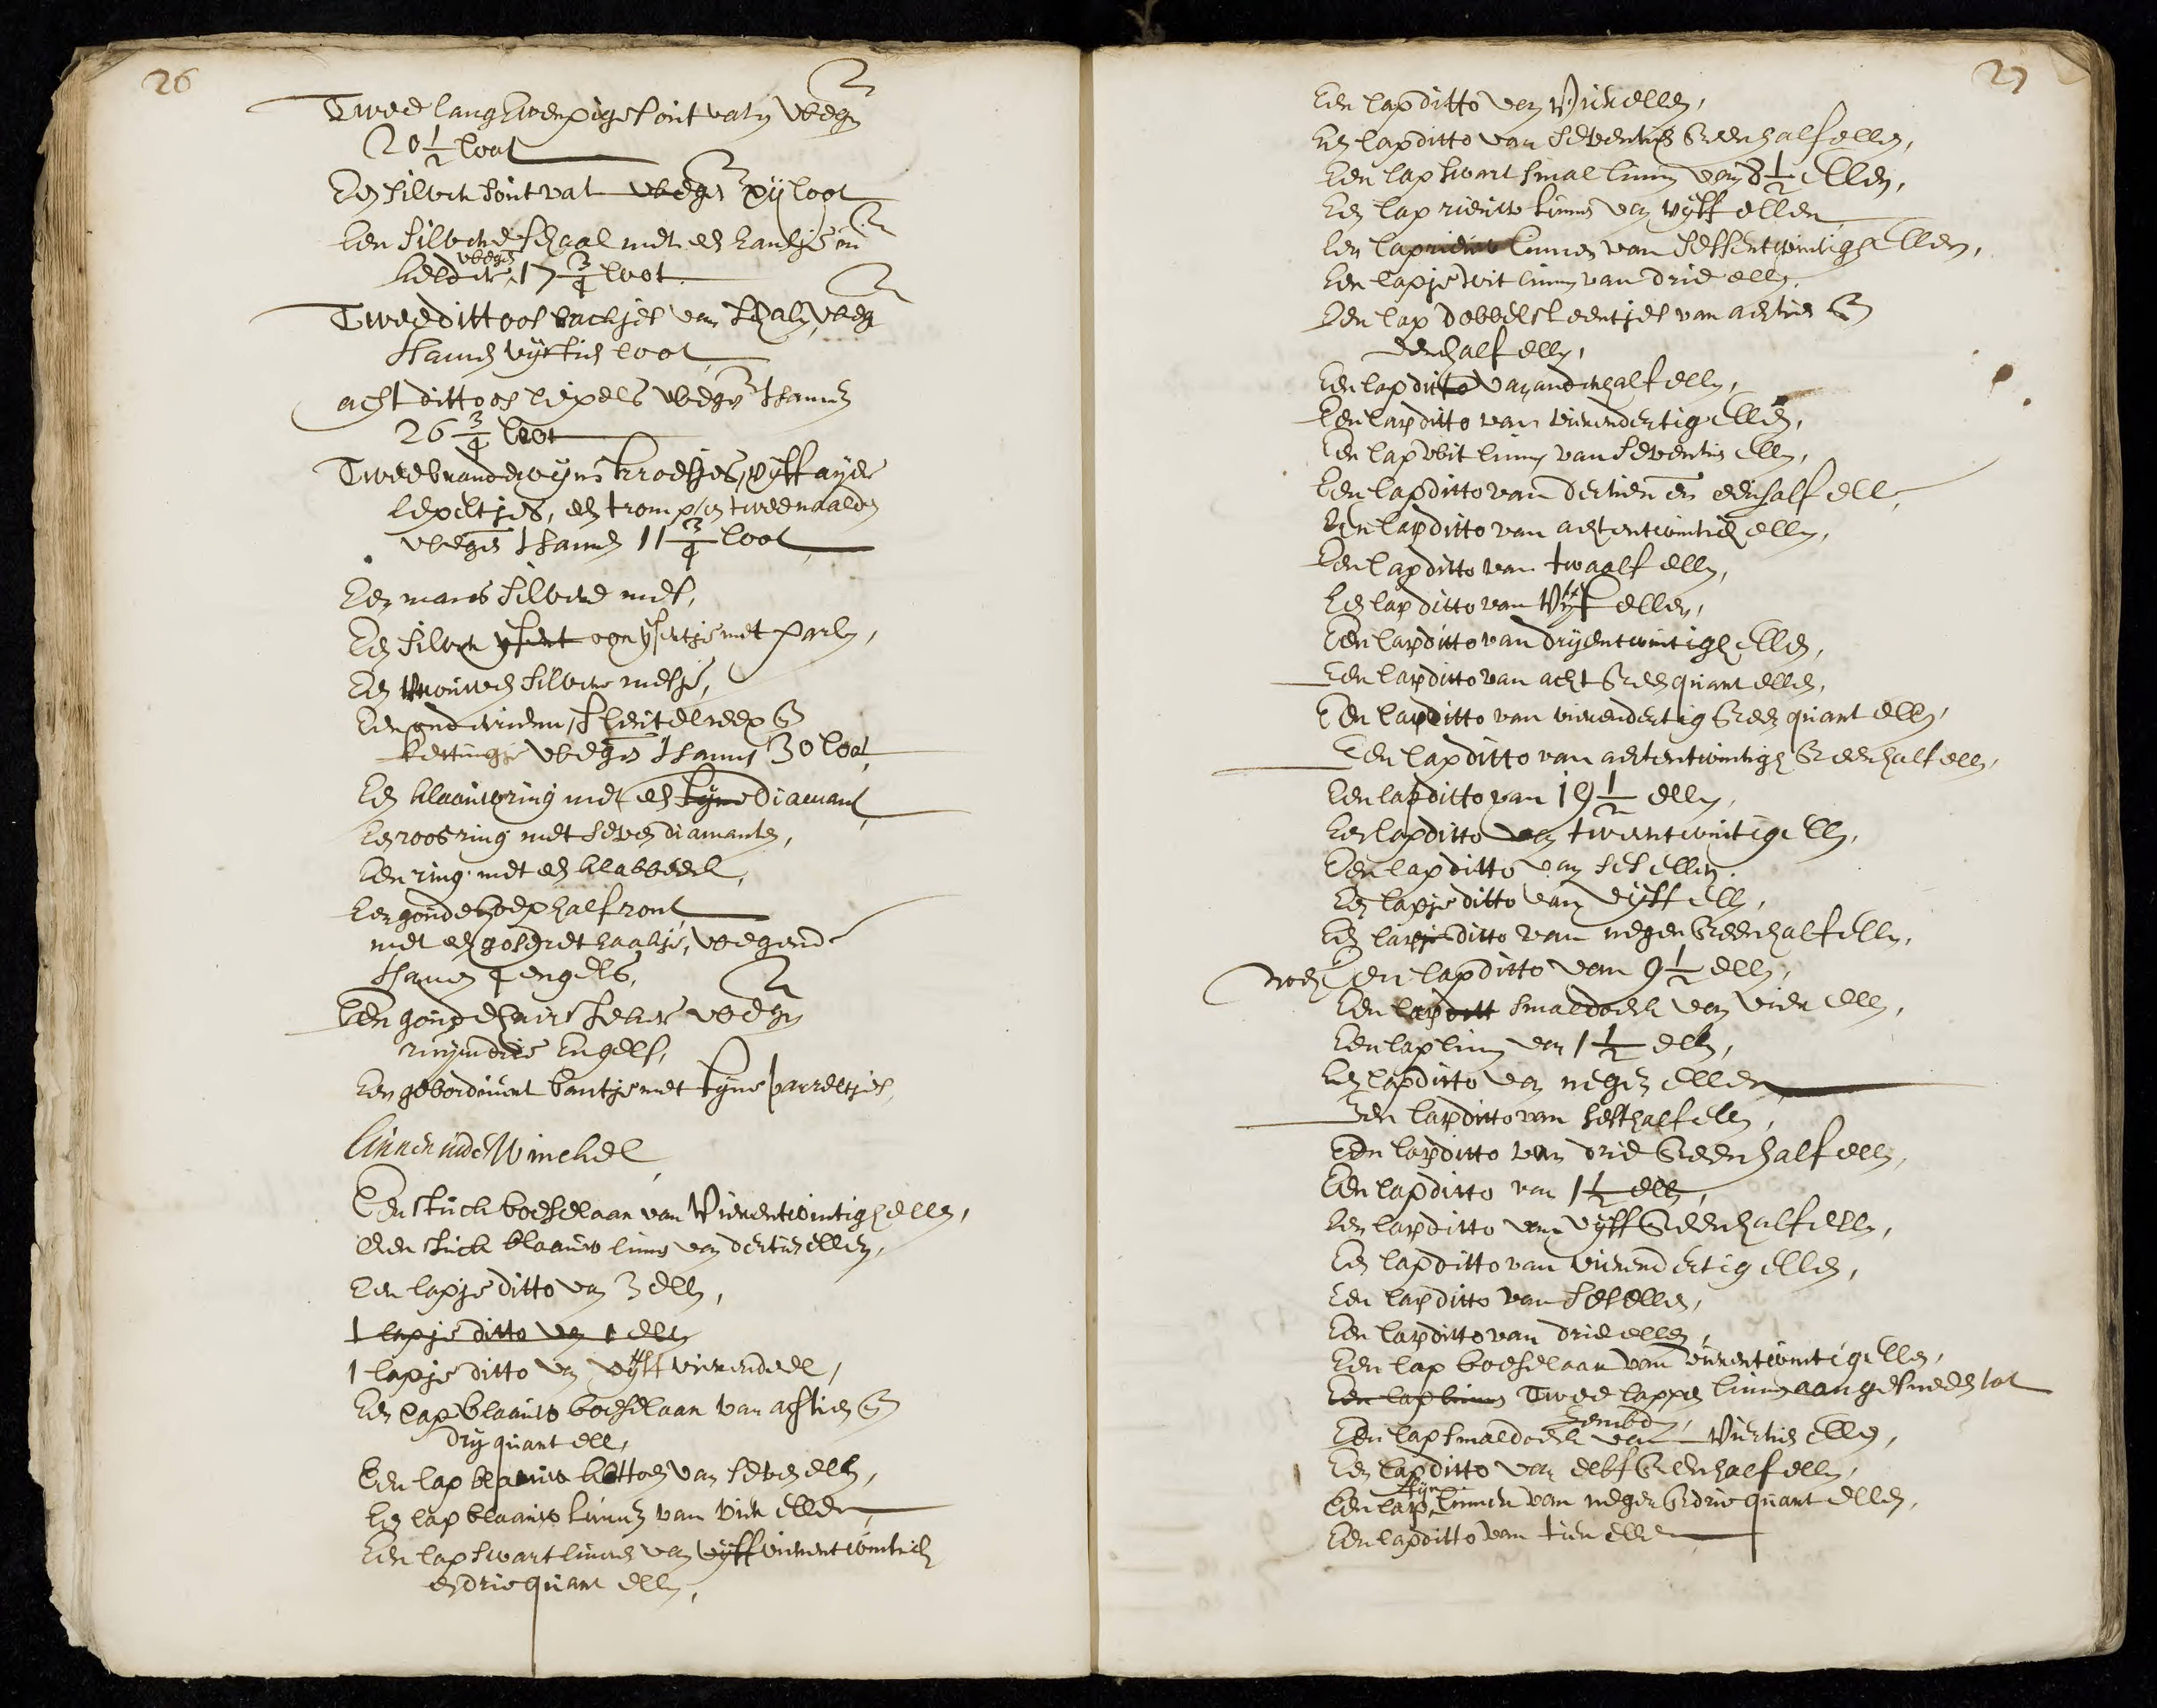 26
Twee langwerpige soutvaten wegen
20 1/2 loot
Een silver soutvat wegen xij loot
Een silvere schaal met een kantje in
kelder wegen 17 3/4 loot
Twee dittoos backjes van schalen weg
tsamen vijftien loot
acht dittoos lepels wegen tsamen
26 3/4 loot
Twee brandewijns kroesjes, vijff aijer
lepeltjes, een tromp en twee naalden
wegen tsamen 11 3/4 loot
Een mans silvere mes,
Een silver ijsert oorijsertje met parlen,
Een vrouwen silver mesje,
Een onderriem, sleutelreex en
kettingje wegen tsamen 30 loot
Een blaauwe ring met een fijne diamant
Een roosring met seven diamanten,
Een ring met een klabbeeck,
Een goude hoep half ront
met een haakje, wegende
tsamen 4 engels,
Een goude wegen
ruijm drie Engels,
Een geborduurt bantje met fijne parreltjes,
Linnen inde Winckel
Een stuck boeselaar van Vierentwintigh ellen,
Een stuck blaauw linne van dertien ellen,
Een lapje ditto van 3 ellen,
1 lapje ditto van 1 ellen
1 lapje ditto van vijff vierendeel,
Een lap blaauw boeselaar van achtien en
drij quart ell,
Een lap blaauw kattoen van seven ellen,
Een lap blaauw linnen van vier ellen
Een lap swart linnen van vijff vierentwintich
en drie quart ellen,
27
Een lap ditto van Vier ellen,
Een lap ditto van seventien & een half ellen,
Een lap swart smal linnen van 8 1/2 Ellen,
Een lap rieuw linnen van vijff ellen
Een lap linnen van sessentwintigh Ellen,
Een lapje wit linnen van drie ellen,
Een lap dobbelsteentjes van achtien en
een half ellen,
Een lap ditto van anderhalf ellen,
Een lap ditto van vierendertig Ellen,
Een lap wit linnen van seventien ellen,
Een lap ditto van dertien en een half ell,
Een lap ditto van achtentwintich ellen,
Een lap ditto van twaalf ellen,
Een lap ditto van Vijf ellen,
Een lap ditto van drijentwintigh Ellen,
Een lap ditto van acht & een quart ellen,
Een lap ditto van vierendertig & een quart ellen,
Een lap ditto van achtentwintigh & een half ellen,
Een lap ditto van 19 1/2 ellen,
Een lap ditto van tweentwintig ellen,
Een lap ditto van ses ellen,
Een lapje ditto van vijff ellen,
Een lapje ditto van negen & een half ellen,
Noch een lap ditto van 9 1/2 ellen,
Een lap ditt smaldoeck van vier ellen,
Een lap linnen van 1 1/2 ellen,
Een lap ditto van negen ellen
Een lap ditto van sesthalf ellen,
Een lap ditto van drie & een half ellen,
Een lap ditto van 1 1/2 ellen,
Een lap ditto van vijff & een half ellen,
Een lap ditto van vierendertig ellen,
Een lap ditto van ses ellen,
Een lap ditto van drie ellen,
Een lap boeselaar van vierentwintig ellen,
Een lap linnen Twee lappen linnen aangesneden tot
hembden,
Een lap smaldoeck van Viertien ellen,
Een lap ditto van elff & een half ellen,
Een lap fijn linnen van negen & drie quart ellen,
Een lap ditto van tien ellen